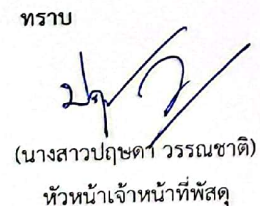 ทราบ
(นางสาวปฤษดา วรรณชาติ)
หัวหน้าเจ้าหน้าที่พัสดุ